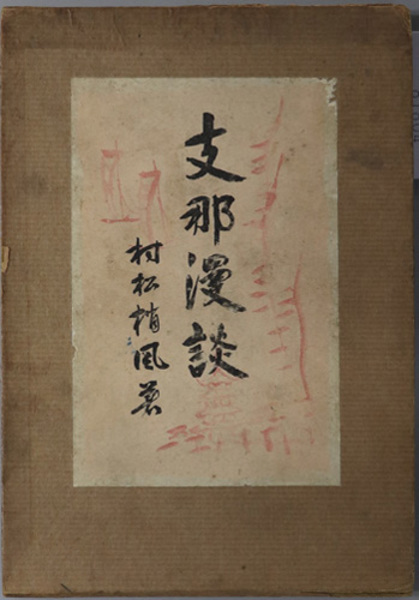 支那漫談
村松梢風著